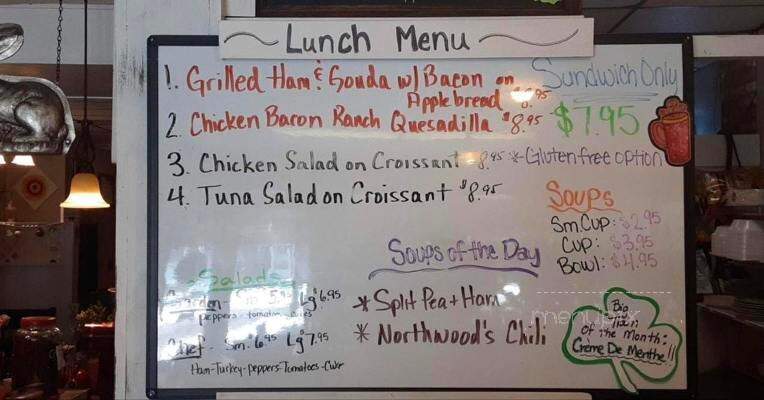 Lunch Menu
1. Grilled Ham & Gouda w/ Bacon on
Applebread $8.95
2. Chicken Bacon Ranch Quesadilla $8.95
3. Chicken Salad on Croissant - 8.95 *-Gluten free option
4. Tuna Salad on Croissant $8.95
Sandwich Only
$7.95
Soups
Sm. Cup: $2.95
Cup: $3.95
Bowl: $4.95
Soups of the Day
* Split Pea + Ham
* Northwood's Chili
Salads
Garden - Sm 5.95 Lg $6.95
peppers - tomatoes
Chef - Sm. $6.95 Lg $7.95
Ham-Turkey-Peppers-Tomatoes-Cukr
Big
Train
of the Month:
Creme De Menthe!!